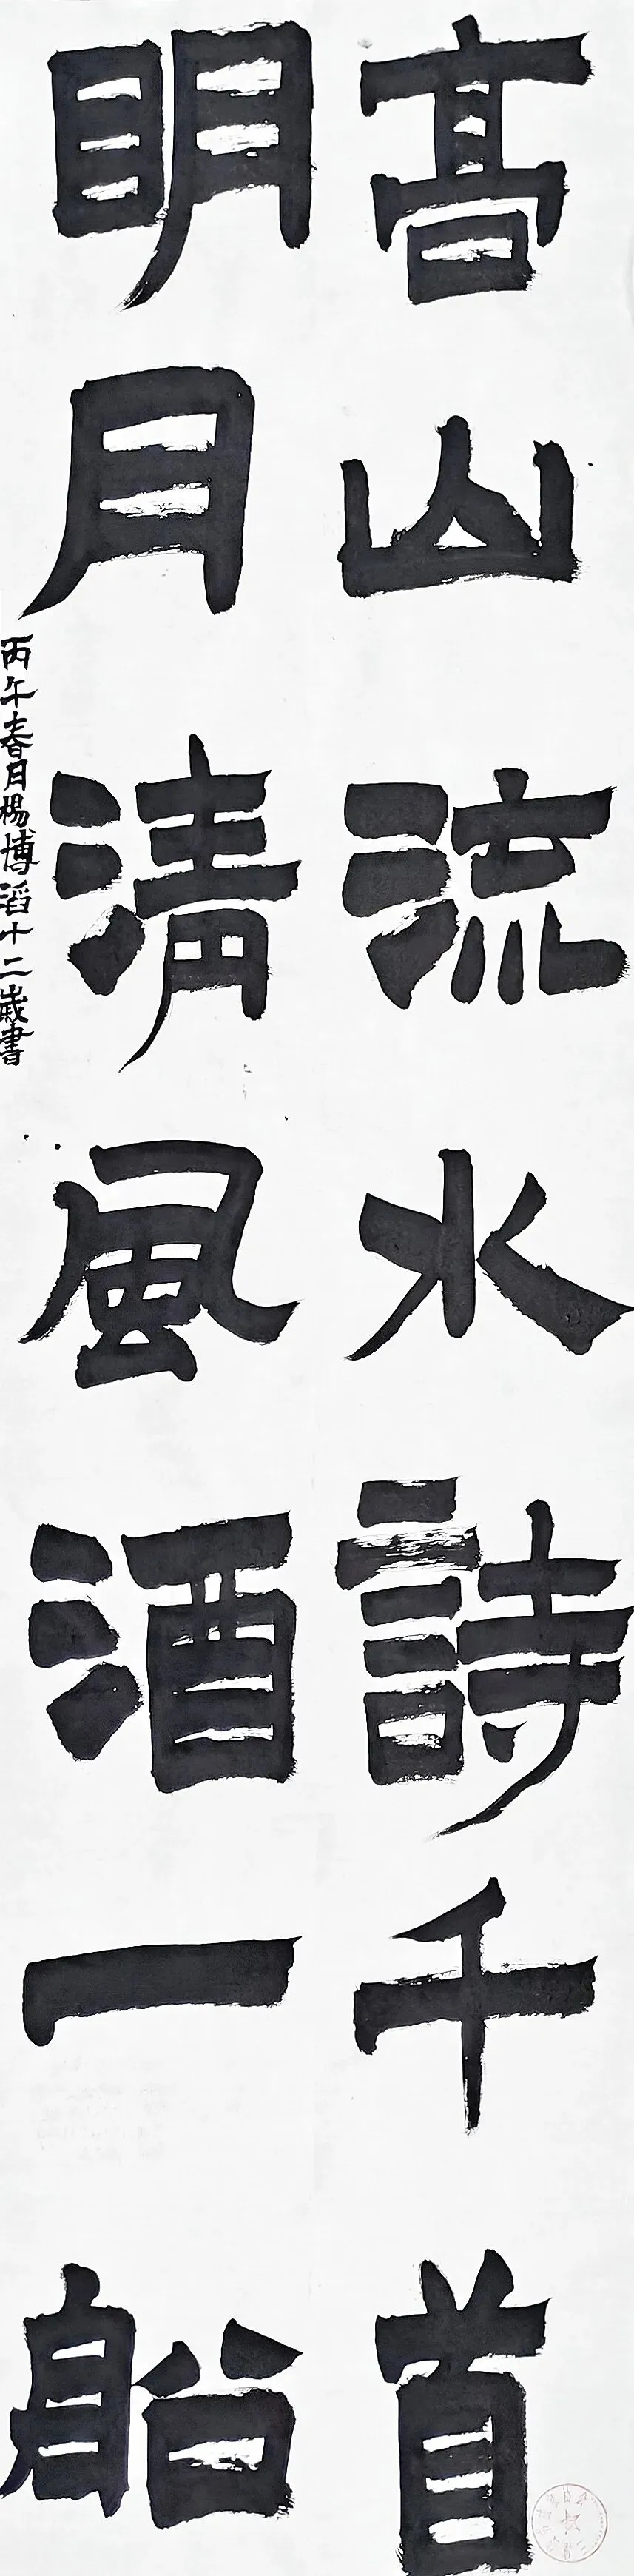 高山流水詩千首
明月清風酒一船
丙午春月楊博滔十二歲書